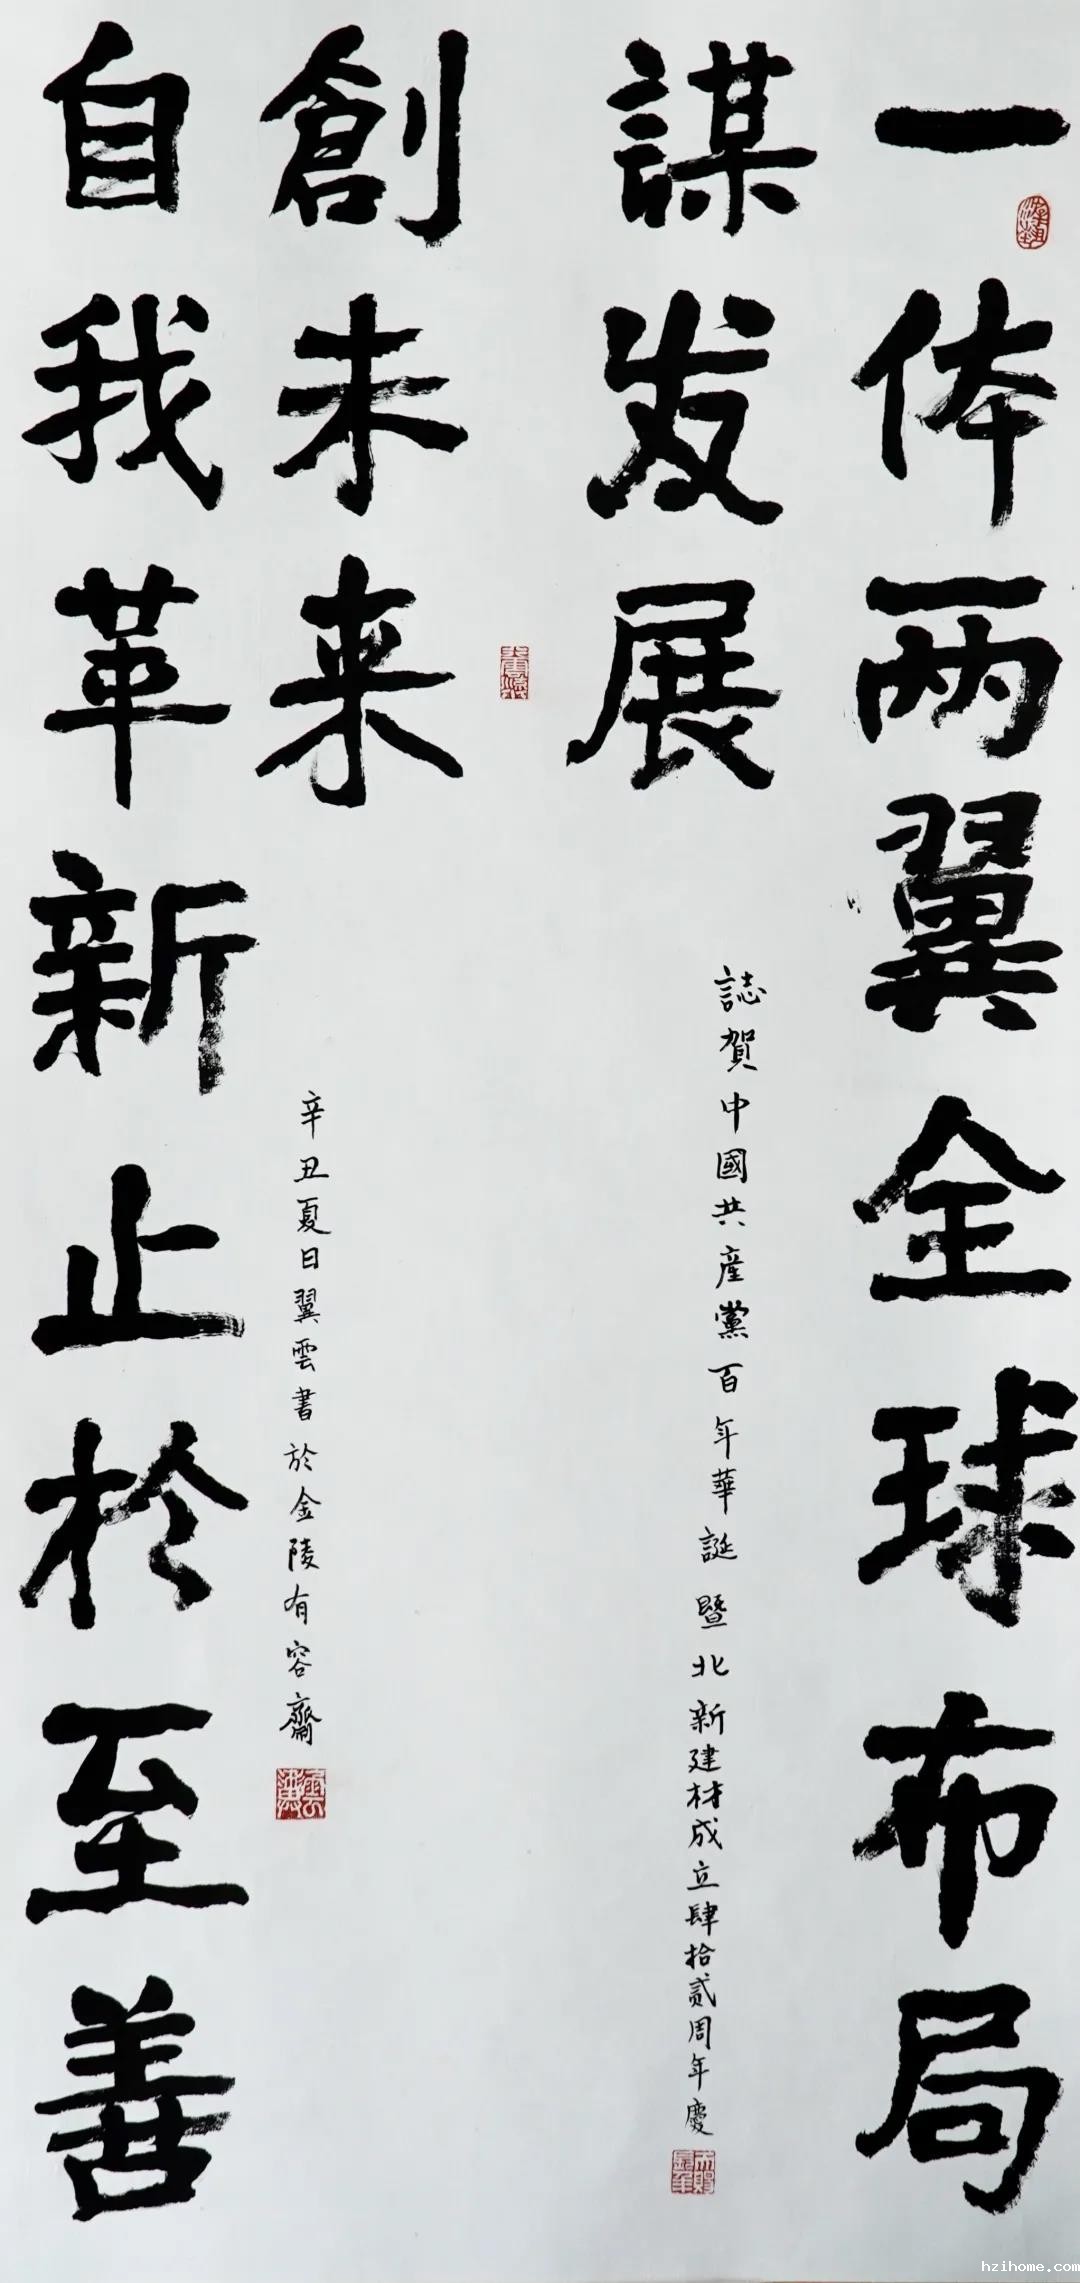 一体两翼全球布局
謀发展
誌賀中國共產黨百年華誕暨北新建材成立肆拾贰周年慶
創未来
自我革新止於至善
辛丑夏日翼雲書於金陵有容齋
hzihome.com